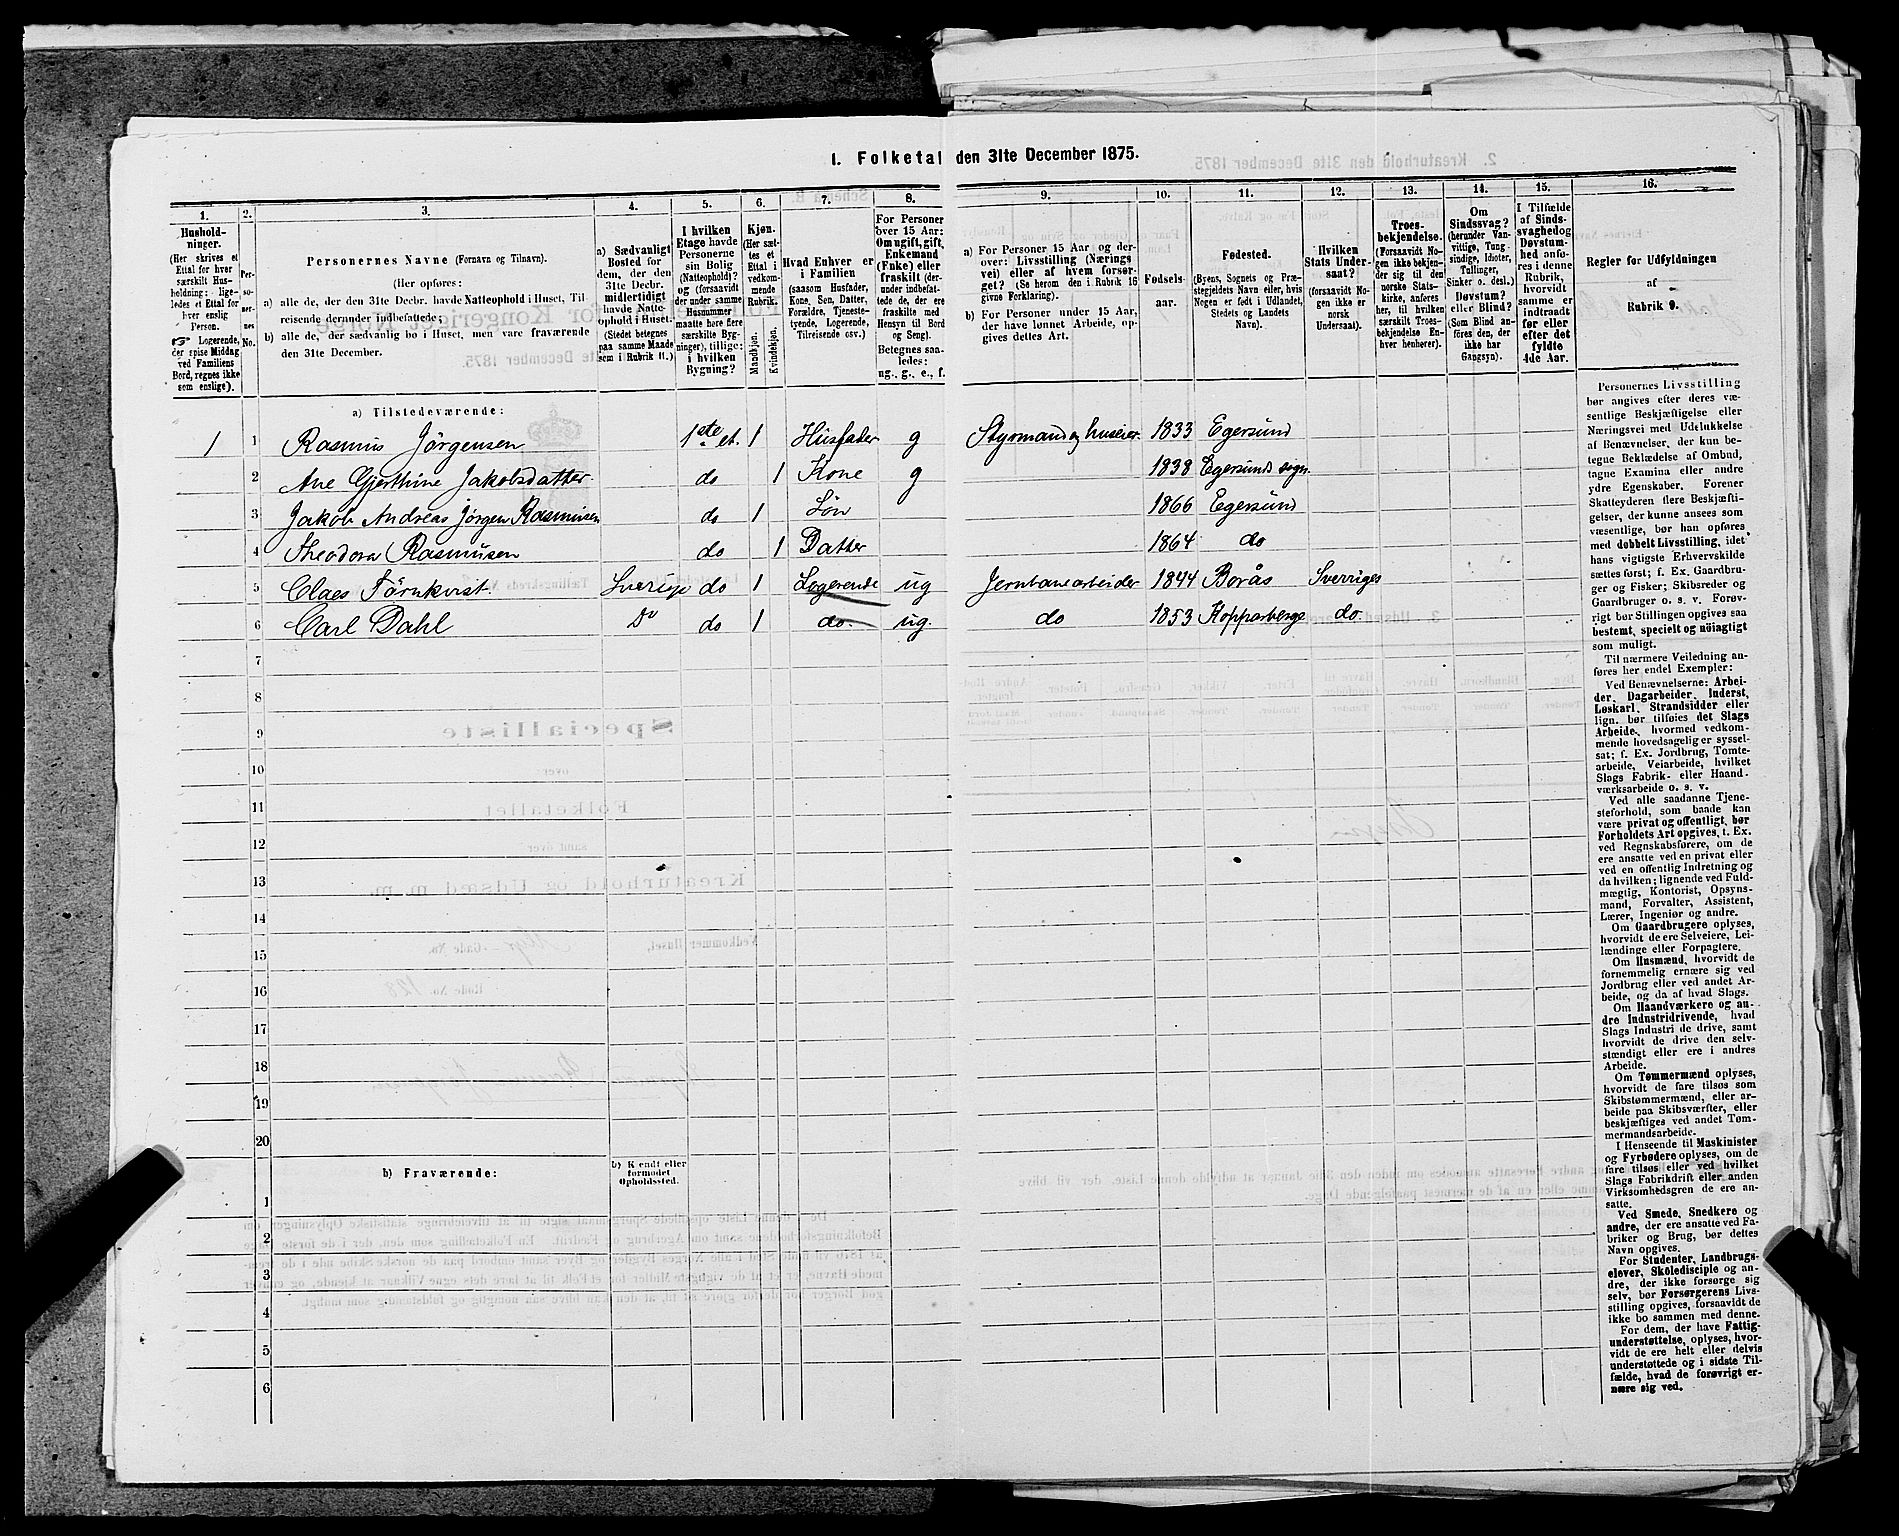 1. Folketal den 31te December 1875.
1. 2. 3. 4. 5. 6. 7. 8. 9. 10. 11. 12. 13. 14. 15. 16.
Hushold-
ninger.
(Her skrives et
Ettal for hver
særskilt Hus-
holdning: lige-
ledes et Ettal for
hver enslig
Person.
Logerende,
der spise Middag
ved Familiens
Bord, regnes ikke
som enslige).
Per-
so-
ner-
nes
No.
Personernes Navne (Fornavn og Tilnavn).
(Her opføres:
a) alle de, der den 31te Decbr. havde Natteophold i Huset, Til-
reisende derunder indbefattede;
b) alle de, der sædvanlig bo i Huset, men vare fraværende
den 31te December.
a) Sædvanligt
Bosted for
dem, der den
31te Decbr.
midlertidigt
havde Natte-
ophold i Huset.
(Stedet betegnes
paa samme Maade
som i Rubrik 11.)
I hvilken
Etage havde
Personerne
sin Bolig
(Natteophold)?
og (forsaavidt
der under samme
Husnummer
maatte høre flere
særskilte Byg-
ninger), tillige:
i hvilken
Bygning?
Kjøn.
(Her sæt-
tes et
Ettal i
vedkom-
mende
Rubrik.
Mandkjøn.
Kvindekjøn.
Hvad Enhver er
i Familien
(saasom Husfader,
Kone, Søn, Datter,
Forældre, Tjeneste-
tyende, Logerende,
Tilreisende osv.)
For Personer
over 15 Aar:
Om ugift, gift,
Enkemand
(Enke) eller
fraskilt (der-
under indbefat-
tede de, der ere
fraskilte med
Hensyn til Bord
og Seng).
Betegnes saa-
ledes:
ug., g., e., f.
a) For Personer 15 Aar og der-
over: Livsstilling (Nærings
vei) eller af hvem forsør-
get? (Se herom den i Rubrik 16
givne Forklaring).
b) For Personer under 15 Aar,
der have lønnet Arbeide, op-
gives dettes Art.
Fødsels-
aar.
Fødested.
(Byens, Sognets og Præ-
stegjeldets Navn eller, hvis
Nogen er født i Udlandet,
Stedets og Landets
Navn).
Hvilken
Stats Under-
saat?
(forsaavidt No-
gen ikke er
norsk
Undersaat).
Troes-
bekjendelse.
(Forsaavidt No-
gen ikke bekjen-
der sig til den
norske Stats-
kirke, anføres
her, til hvilken
særskilt Troes-
bekjendelse En-
hver henhører).
Om
Sindssvag?
(herunder Van-
vittige, Tung-
sindige, Idioter,
Tullinger,
Sinker o. desl.)
Døvstum?
eller Blind?
(Som Blind an-
føres den, der
ikke har
Gangsyn).
I Tilfælde
af Sinds-
svaghed og
Døvstum-
hed anfø-
res i denne
Rubrik,
hvorvidt
samme er
indtraadt
før eller
efter det
fyldte
4de Aar.
Regler for Udfyldningen
af
Rubrik 9.
a) Tilstedeværende:
1 1 Rasmus Jörgensen 1ste et. 1 Husfader g Styrmand og huseier. 1833 Egersund
2 Ane Gjerthine Jakobsdatter do 1 Kone g 1838 Egersunds sogn.
3 Jakob Andreas Jörgen Rasmusen do 1 Sön 1866 Egersund
4 Theodora Rasmusen do 1 Datter 1864 do
5 Claes Törnkvist. Sverige do 1 Logerende ug Jernbanearbeider 1844 Borås Sverriges
6 Carl Dahl Do do 1 do. ug. do 1853 Kopparberge do.
7
8
9
10
11
12
13
14
15
16
17
18
19
20
b) Fraværende:
b) Kendt eller
formodet
Opholdssted.
1
2
3
4
5
6
Personernes Livsstilling
bør angives efter deres væ-
sentlige Beskjæftigelse eller
Næringsvei med Udelukkelse
af Benævnelser, der kun be-
tegne Beklædelse af Ombud,
tagne Examina eller andre
ydre Egenskaber. Forener
Skatteyderen flere Beskjæfti-
gelser, der kunne ansees som
væsentlige, bør han opføres
med dobbelt Livsstilling, idet
hans vigtigste Erhvervskilde
sættes først; f. Ex. Gaardbru-
ger og Fisker; Skibsreder og
Gaardbruger o. s. v. Forøv-
rigt bør Stillingen opgives saa
bestemt, specielt og nöiagtigt
som muligt.
Til nærmere Veiledning an-
føres her endel Exempler:
Ved Benævnelserne: Arbei-
der, Dagarbeider, Inderst,
Løskarl, Strandsidder eller
lign. bør tilføies det Slags
Arbeide, hvormed vedkom-
mende hovedsagelig er syssel-
sat; f. Ex. Jordbrug, Tomte-
arbeide, Veiarbeide, hvilket
Slags Fabrik- eller Haand-
værksarbeide o. s. v.
Ved alle saadanne Tjene-
steforhold, som baade kan
være privat og offentligt, bør
Forholdets Art opgives, t. Ex.
ved Regnskabsførere, om de
ere ansatte ved en privat eller
ved en offentlig Indretning og
da hvilken; lignende ved Fuld-
mægtig, Kontorist, Opsyns-
mand, Forvalter, Assistent,
Lærer, Ingeniør og andre.
Om Gaardbrugere oplyses,
hvorvidt de ere Selveiere, Lei-
lændinge eller Forpagtere.
Om Husmænd, hvorvidt de
fornemmelig ernære sig ved
Jordbrug eller ved andet Ar-
beide, og da af hvad Slags.
Om Haandværkere og an-
dre Industridrivende, hvad
Slags Industri de drive, samt
hvorvidt de drive den selv-
stændigt eller ere i andres
Arbeide.
Om Tømmermænd oplyses,
hvorvidt de fare tilsøs som
Skibstømmermænd, eller ar-
beide paa Skibsværfter, eller
beskjæftiges ved andet Tøm-
mermandsarbeide.
I Henseende til Maskinister
og Fyrbødere oplyses, om de
fare tilsøs eller ved hvilket
Slags Fabrikdrift eller anden
Virksomhedsgren de ere an-
satte.
Ved Smede, Snedkere og
andre, der ere ansatte ved Fa-
briker og Brug, bør dettes
Navn opgives.
For Studenter, Landbrugs-
elever, Skoledisciple og an-
dre, der ikke forsørge sig
selv, bør Forsørgerens Livs-
stilling opgives, forsaavidt de
ikke bo sammen med denne.
For dem, der have Fattig-
understøttelse, oplyses, hvor-
vidt de ere helt eller delvis
understøttede og i sidste Til-
fælde, hvad de forøvrigt er-
nære sig ved.